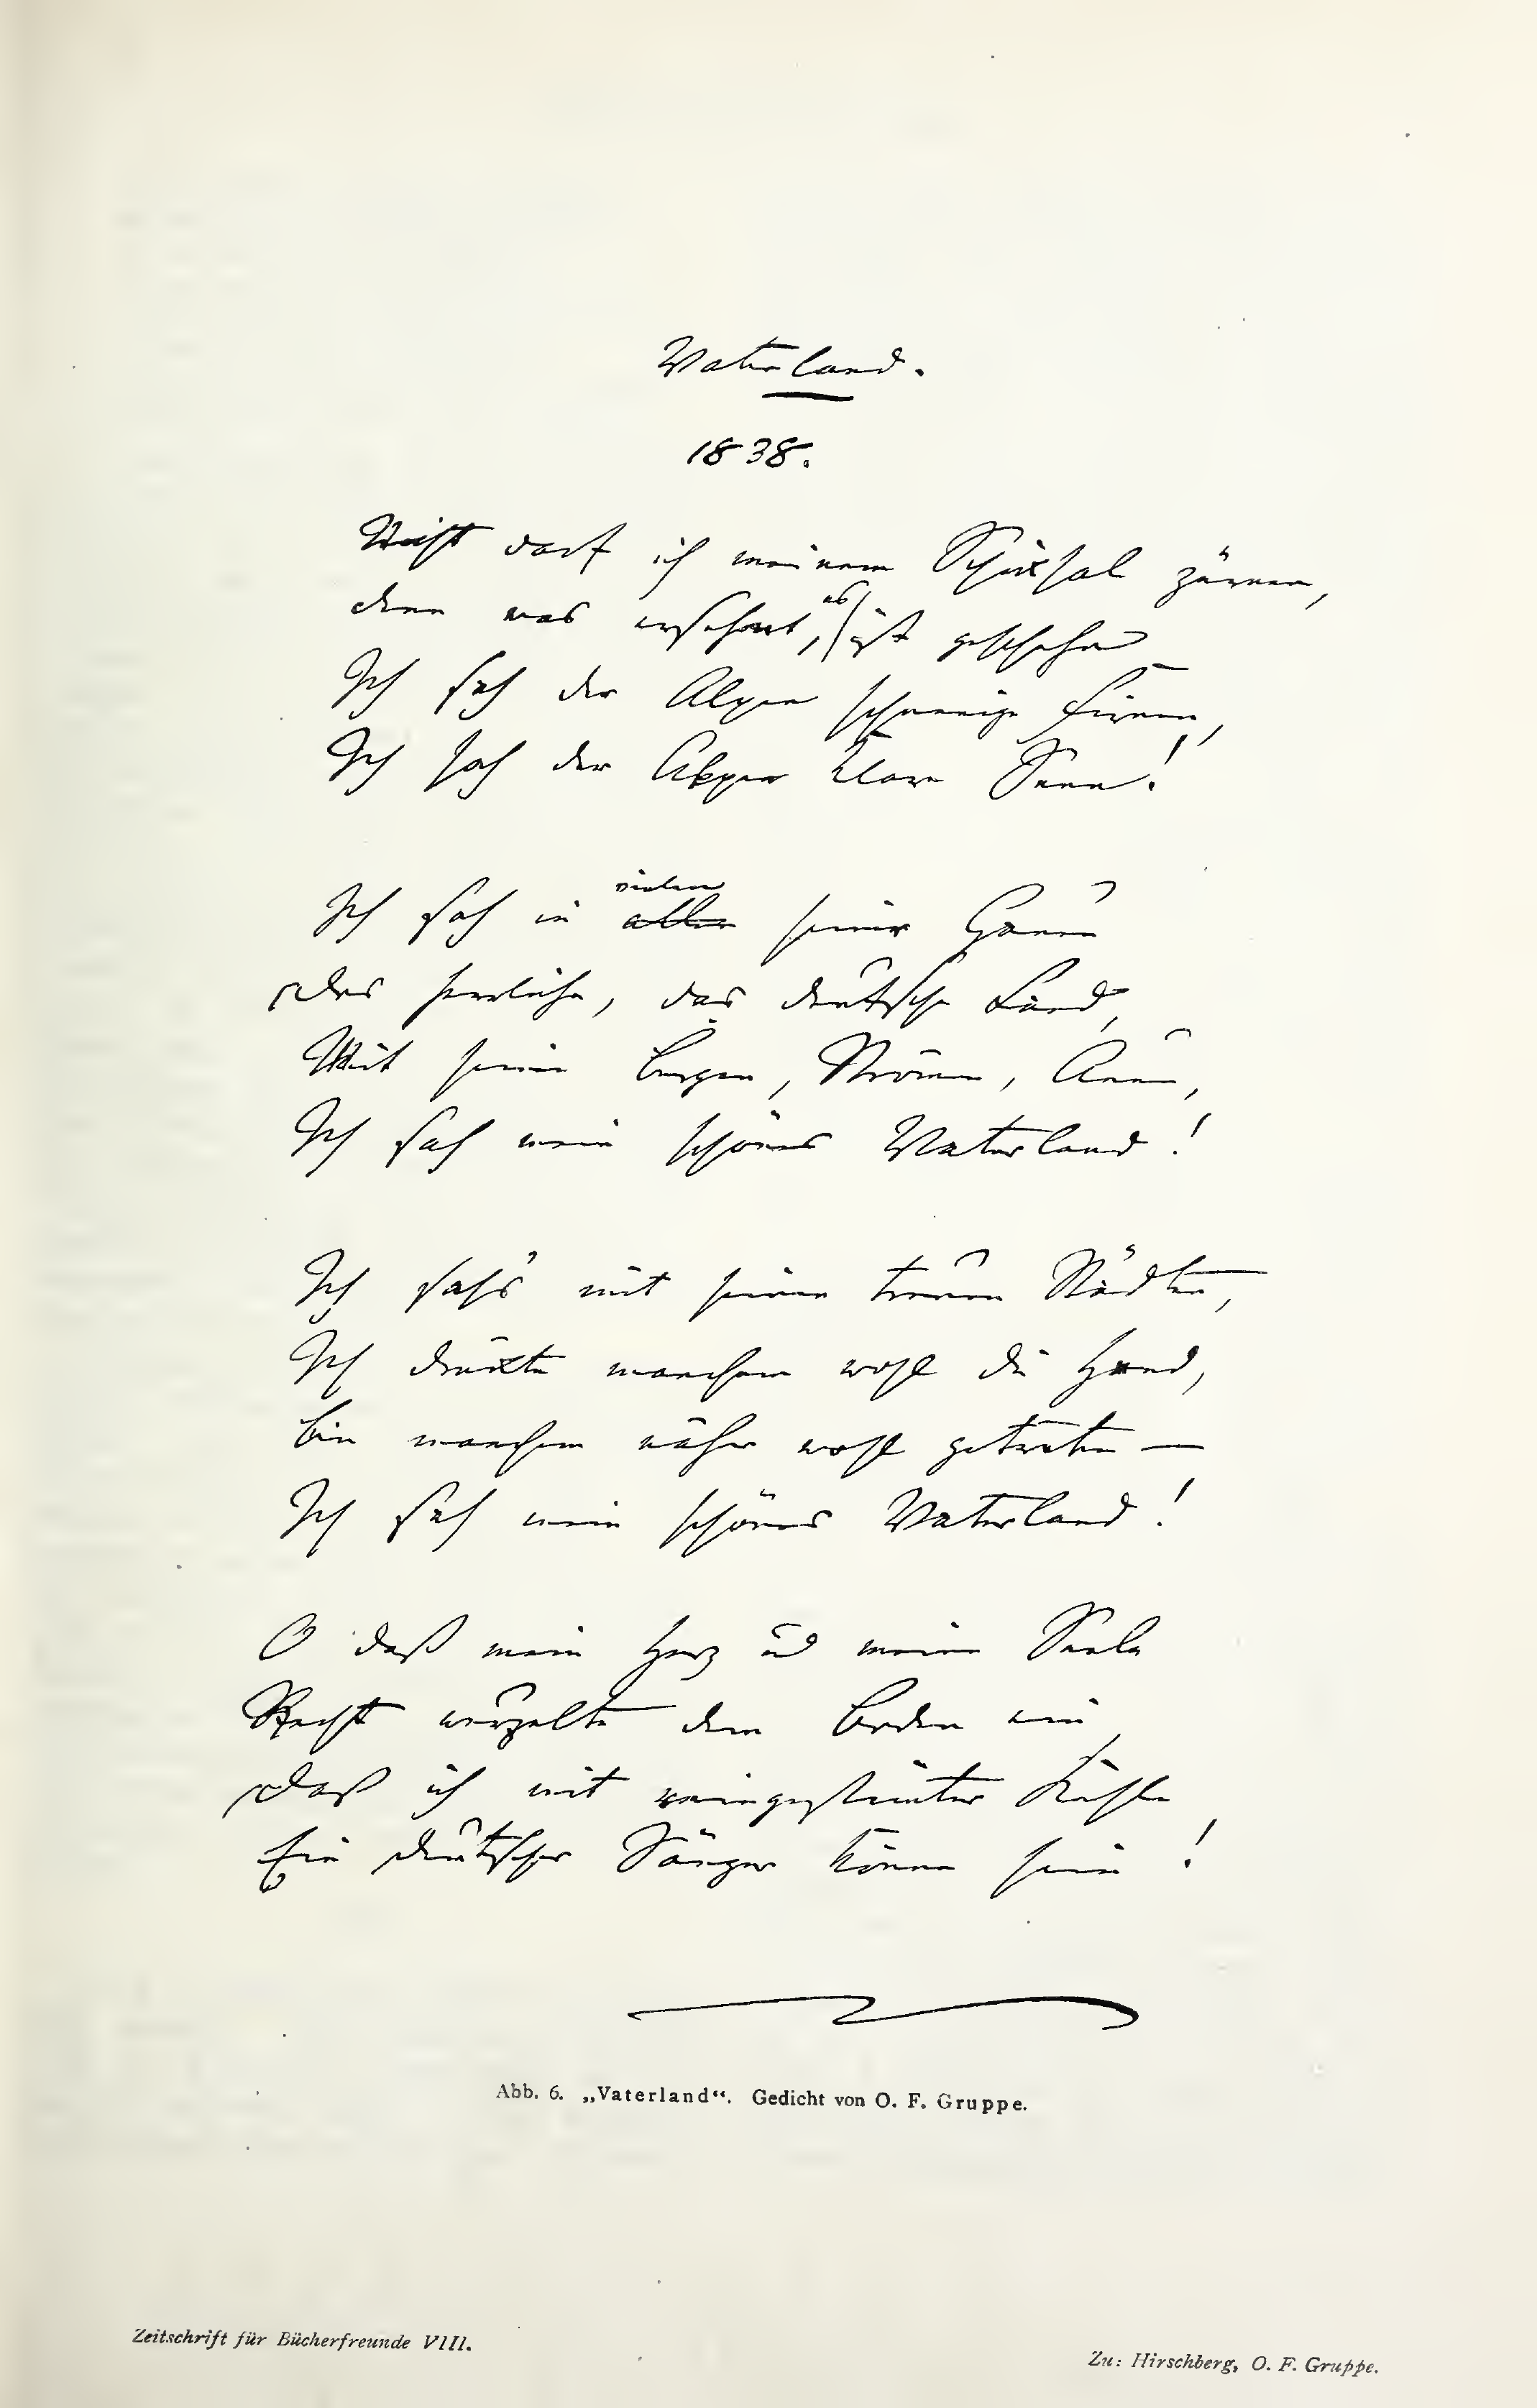 Vaterland.
1838.
Nicht darf ich meinem Schicksal zürnen,
denn was ersehnt, es ist geschehn
Ich sah der Alpen schneeige Firnen,
Ich sah der Alpen klare Seen!
Ich sah in allen vielen seiner Gauen
Das herrliche, das deutsche Land,
Mit seinen Burgen, Strömen, Auen,
Ich sah mein schönes Vaterland!
Ich sah's mit seinen treuen Städten,
Ich drückte manchem wohl die Hand,
Bin manchem näher wohl getreten —
Ich sah mein schönes Vaterland!
O daß mein Herz und meine Seele
Recht wurzelte dem Boden ein,
Daß ich mit reingestimmter Kehle
Ein deutscher Sänger könne sein!
Abb. 6. „Vaterland“. Gedicht von O. F. Gruppe.
Zeitschrift für Bücherfreunde VIII.
Zu: Hirschberg, O. F. Gruppe.